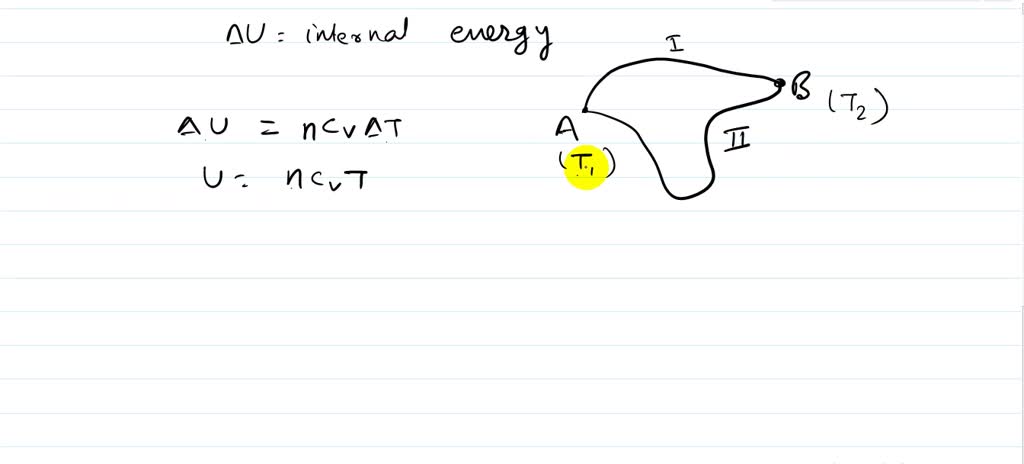 ΔU = internal energy
ΔU = nCvΔT
U = nCvT
I
A
(T₁)
B
(T₂)
II